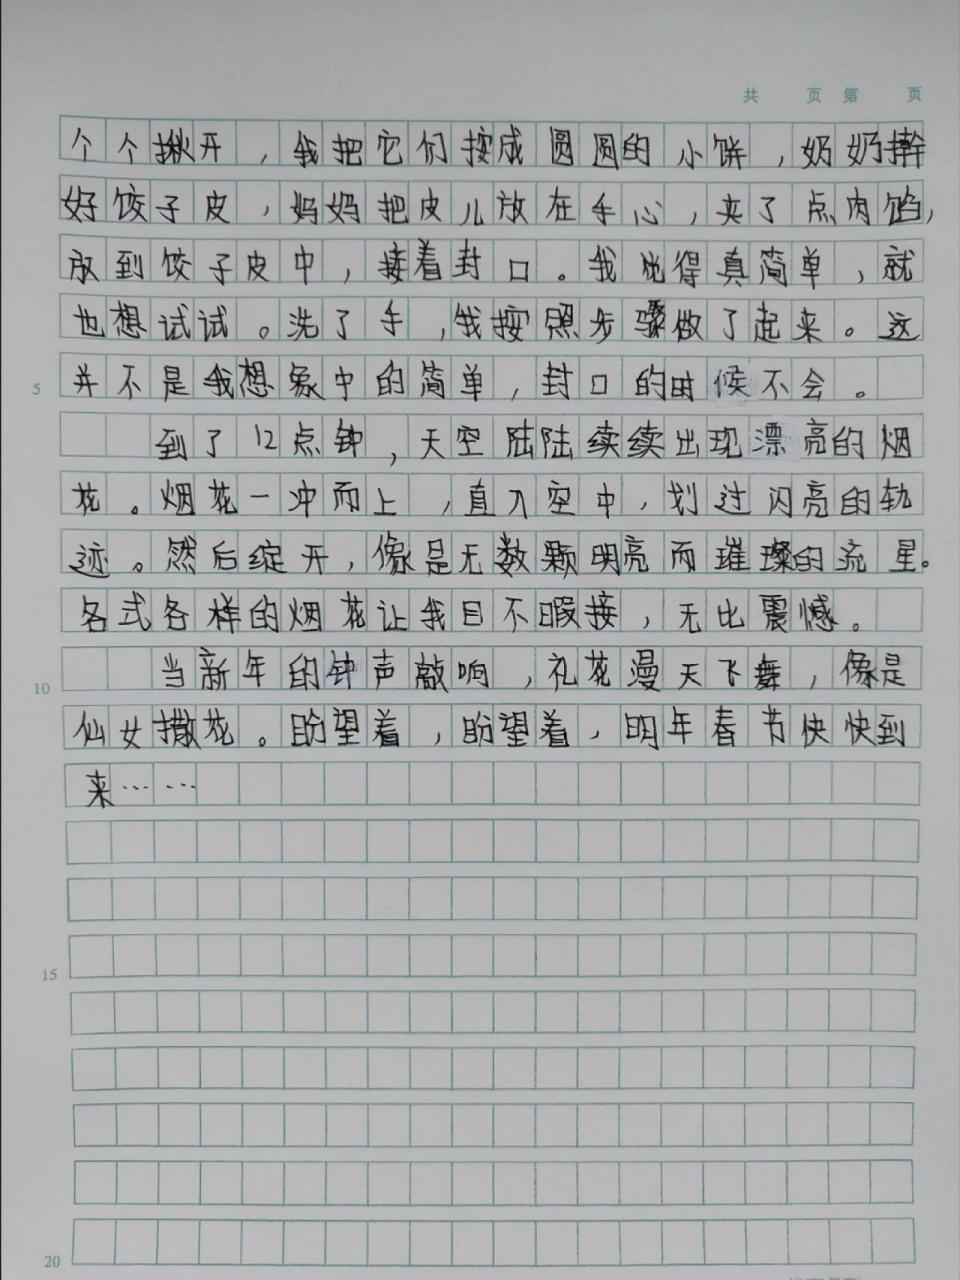 共 页 第 页
个个揪开，我把它们按成圆圆的小饼，奶奶擀
好饺子皮，妈妈把皮儿放在手心，夹了点肉馅，
放到饺子皮中，接着封口。我觉得真简单，就
也想试试。洗了手，我按照步骤做了起来。这
5 并不是我想象中的简单，封口的时候不会。
到了12点钟，天空陆陆续续出现漂亮的烟
花。烟花一冲而上，直入空中，划过闪亮的轨
迹。然后绽开，像是无数颗明亮而璀璨的流星。
各式各样的烟花让我目不暇接，无比震憾。
10 当新年的钟声敲响，礼花漫天飞舞，像是
仙女撒花。盼望着，盼望着，明年春节快快到
来……
15
20